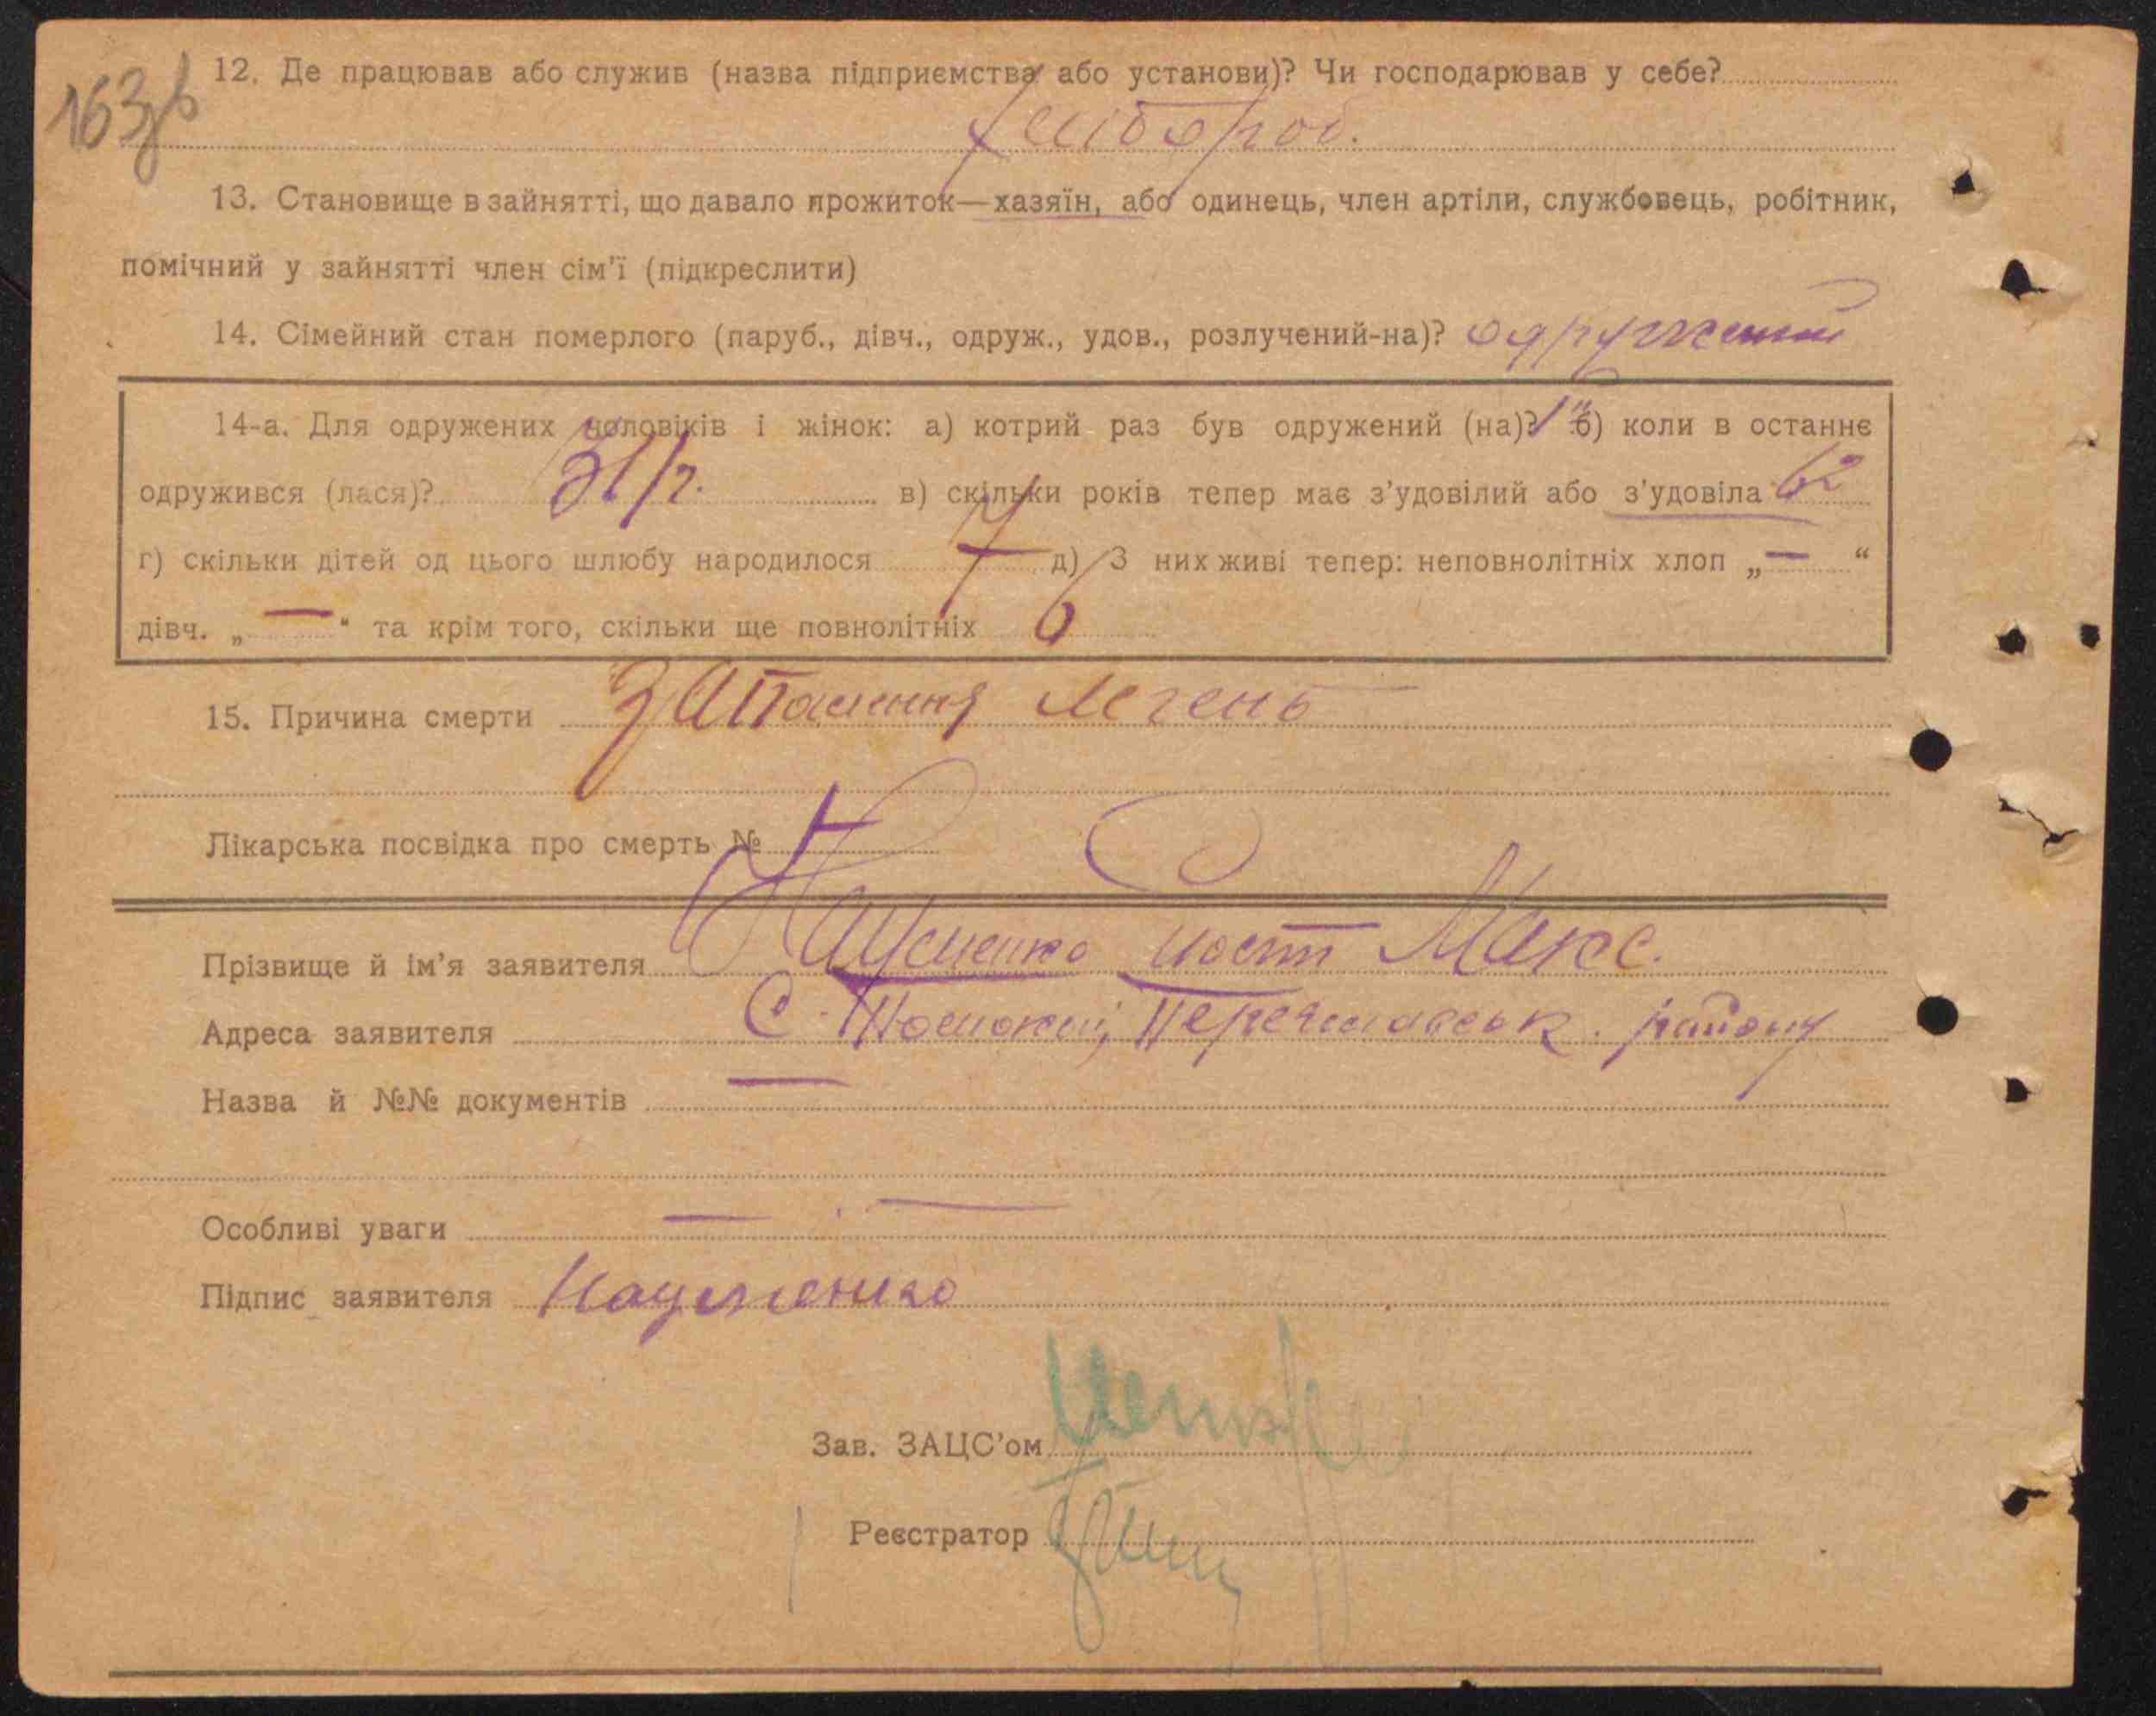 163зв
12. Де працював або служив (назва підприємства або установи)? Чи господарював у себе?
хлібороб.
13. Становище в зайнятті, що давало прожиток—хазяїн, або одинець, член артіли, службовець, робітник,
помічний у зайнятті член сім'ї (підкреслити)
14. Сімейний стан померлого (паруб., дівч., одруж., удов., розлучений-на)? одружений
14-а. Для одружених чоловіків і жінок: а) котрий раз був одружений (на)? 1й б) коли в останнє
одружився (лася)? в) скільки років тепер має з'удовілий або з'удовіла 62
г) скільки дітей од цього шлюбу народилося 7 д) З них живі тепер: неповнолітніх хлоп „—“
дівч. „—“ та крім того, скільки ще повнолітніх 6
15. Причина смерти запалення легень
Лікарська посвідка про смерть №
Прізвище й ім'я заявителя Науменко Макс.
Адреса заявителя С. Переяславськ. району
Назва й №№ документів —
Особливі уваги — —
Підпис заявителя Науменко
Зав. ЗАЦС'ом
Реєстратор